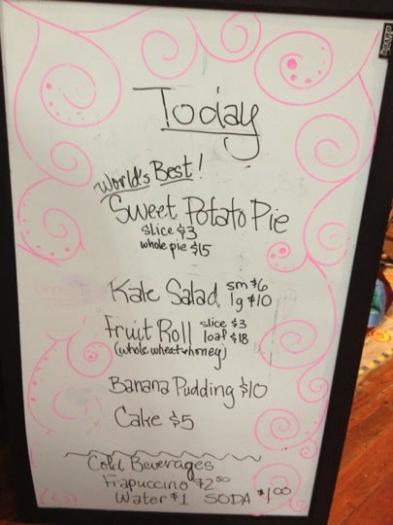 Today
World's Best!
Sweet Potato Pie
slice $3
whole pie $15
Kale Salad sm $6
lg $10
Fruit Roll slice $3
loaf $18
(whole wheat+honey)
Banana Pudding $10
Cake $5
Cold Beverages
Frapuccino $2.00
Water $1 SODA $1.00